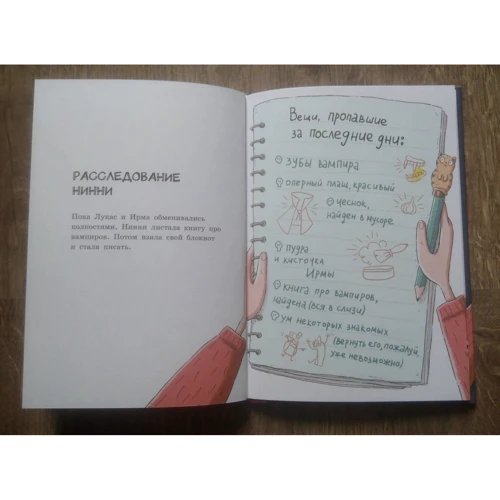 РАССЛЕДОВАНИЕ
НИННИ
Пока Лукас и Ирма обменивались
колкостями, Нинни листала книгу про
вампиров. Потом взяла свой блокнот
и стала писать.
Вещи, пропавшие
за последние дни:
зубы вампира
оперный плащ, красивый
чеснок,
найден в мусоре
пудра
и кисточка
Ирмы
книга про вампиров,
найдена (вся в слизи)
ум некоторых знакомых
(вернуть его, пожалуй,
уже невозможно)